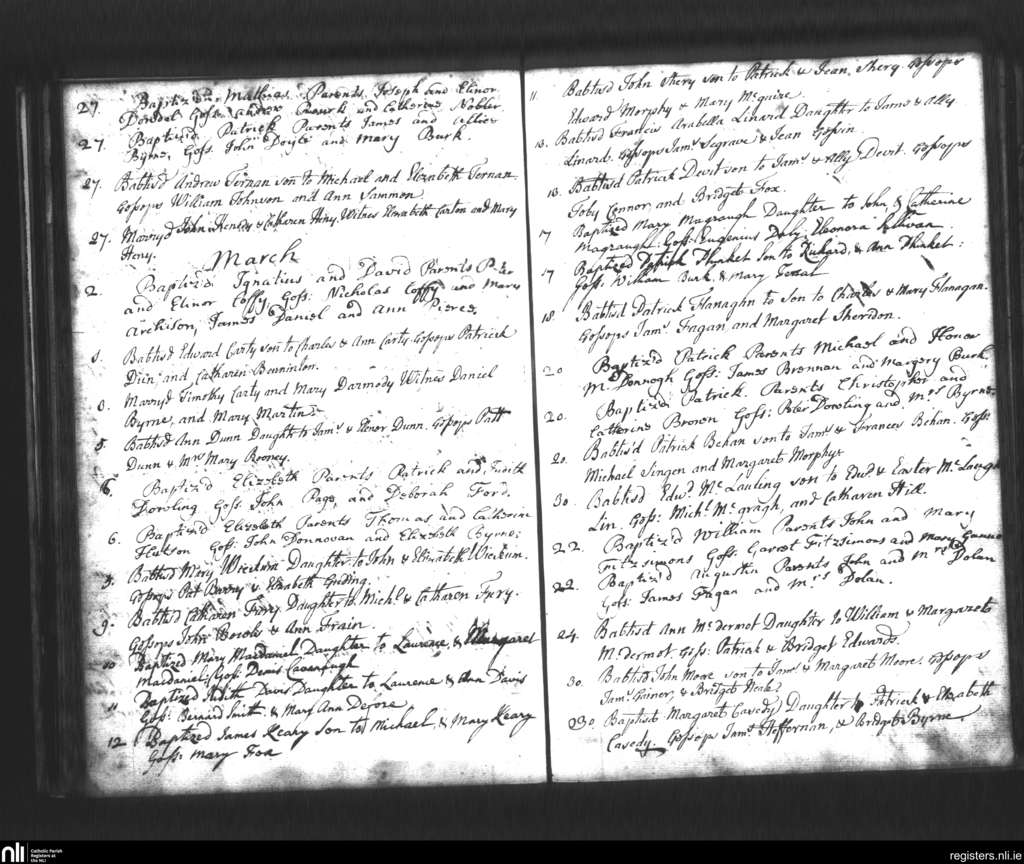 27. Baptiz'd Mathias. Parents. Joseph and Elinor
Goss: Andrew Bourk and Catherine Nobler
27. Baptiz'd Patrick Parents James and
Byrne, Goss. John Doyle and Mary Burk.
27. Babtisd Andrew Ternan son to Michael and Elizabeth Ternan
Gossops William Johnson and Ann Sammon
27. Marryd John Kenedy & Catharen Heny Witness Elizabeth Carton and Mary
Heny.
March
2. Baptiz'd Ignatius and David Parents Peter
and Elinor Coffy, Goss: Nicholas Coffy and Mary
Archison, James Daniel and Ann Pierce.
Babtisd Edward Carty son to Charles & Ann Carty. Gossops Patrick
and Catharen Bonninton.
Marryd Timothy Carty and Mary Darmody Witness Daniel
Byrne, and Mary Martin
5. Babtisd Ann Dunn Daught to Jams & Elenor Dunn. Gossops Patt
Dunn & Mrs Mary Rooney.
6. Baptiz'd Elizabeth Parents Patrick and Judith
Dowling Goss: John Page, and Deborah Ford.
6. Baptiz'd Elizabeth Parents Thomas and Catherine
Goss: John Donnovan and Elizabeth Byrne:
Babtisd Mary Daughter to John & Elizabeth
Gossops Pat Barry & Elisabeth
9. Babtisd Catharen Fury Daughter to Michl & Catharen Fury.
Gossops John & Ann Train.
10 Baptized Mary Macdaniel Daughter to Laurence & Margaret
Macdaniel; Goss: Denis Cavenaugh
11 Baptized Judith Davis Daughter to Laurence & Ann Davis
Goss: Bernard Smith & Mary Ann
12 Baptized James Keahy Son to Michael, & Mary Keary
Goss: Mary Fox
11. Babtisd John Shery son to Patrick & Jean Shery Gossops
Edward Morphy & Mary McGuire
13. Babtisd Francis Arabella Linard Daughter to James & Ally
Linard. Gossops Jams Segrave & Jean Gossin.
13. Babtisd Patrick Devit son to Jams & Ally Devit. Gossops
Toby Connor, and Bridget Fox.
17 Baptized Mary Magraugh Daughter to John & Catherine
Magraugh Goss: Eugenius Daly, Eleonora
17 Baptized Joseph Plunket Son to Richard, & Ann Plunket:
Goss: William Burk & Mary
18. Babtisd Patrick Flanaghn to son to Charles & Mary Flanagan.
Gossops Jams Fagan and Margaret Sheridon.
20 Baptiz'd Patrick Parents Michael and Honor
McDonnogh Goss: James Brennan and Margery Burk.
20. Baptiz'd Patrick. Parents Christopher and
Catherine Brown Goss: Peter Dowling and Mrs Byrne
20. Babtis'd Patrick Behan son to Jams & Frances Behan. Goss:
Michael Singen and Margaret Morphy
30. Babtisd Edwd McLauling son to Edwd & Easter McLaugh
Lin. Goss: Michl McGragh, and Catharen Hill.
22. Baptiz'd William Parents John and Mary
Fitzsimons Goss: Garrot Fitzsimons and Mary
22. Baptiz'd Augustin Parents John and Mrs Dolan
Goss: James Fagan and Mrs Dolan.
24. Babtisd Ann McDermot Daughter to William & Margaret
McDermot. Goss: Patrick & Bridget Edwards.
30. Babtisd John Moore son to Jams & Margaret Moore. Gossops
Jams & Bridget Neale
30 Baptist Margaret Casedy Daughter to Patrick & Elizabeth
Casedy. Gossops Jams Heffernan, & Bridget Byrne
nli
Catholic Parish
Registers at
the NLI
registers.nli.ie